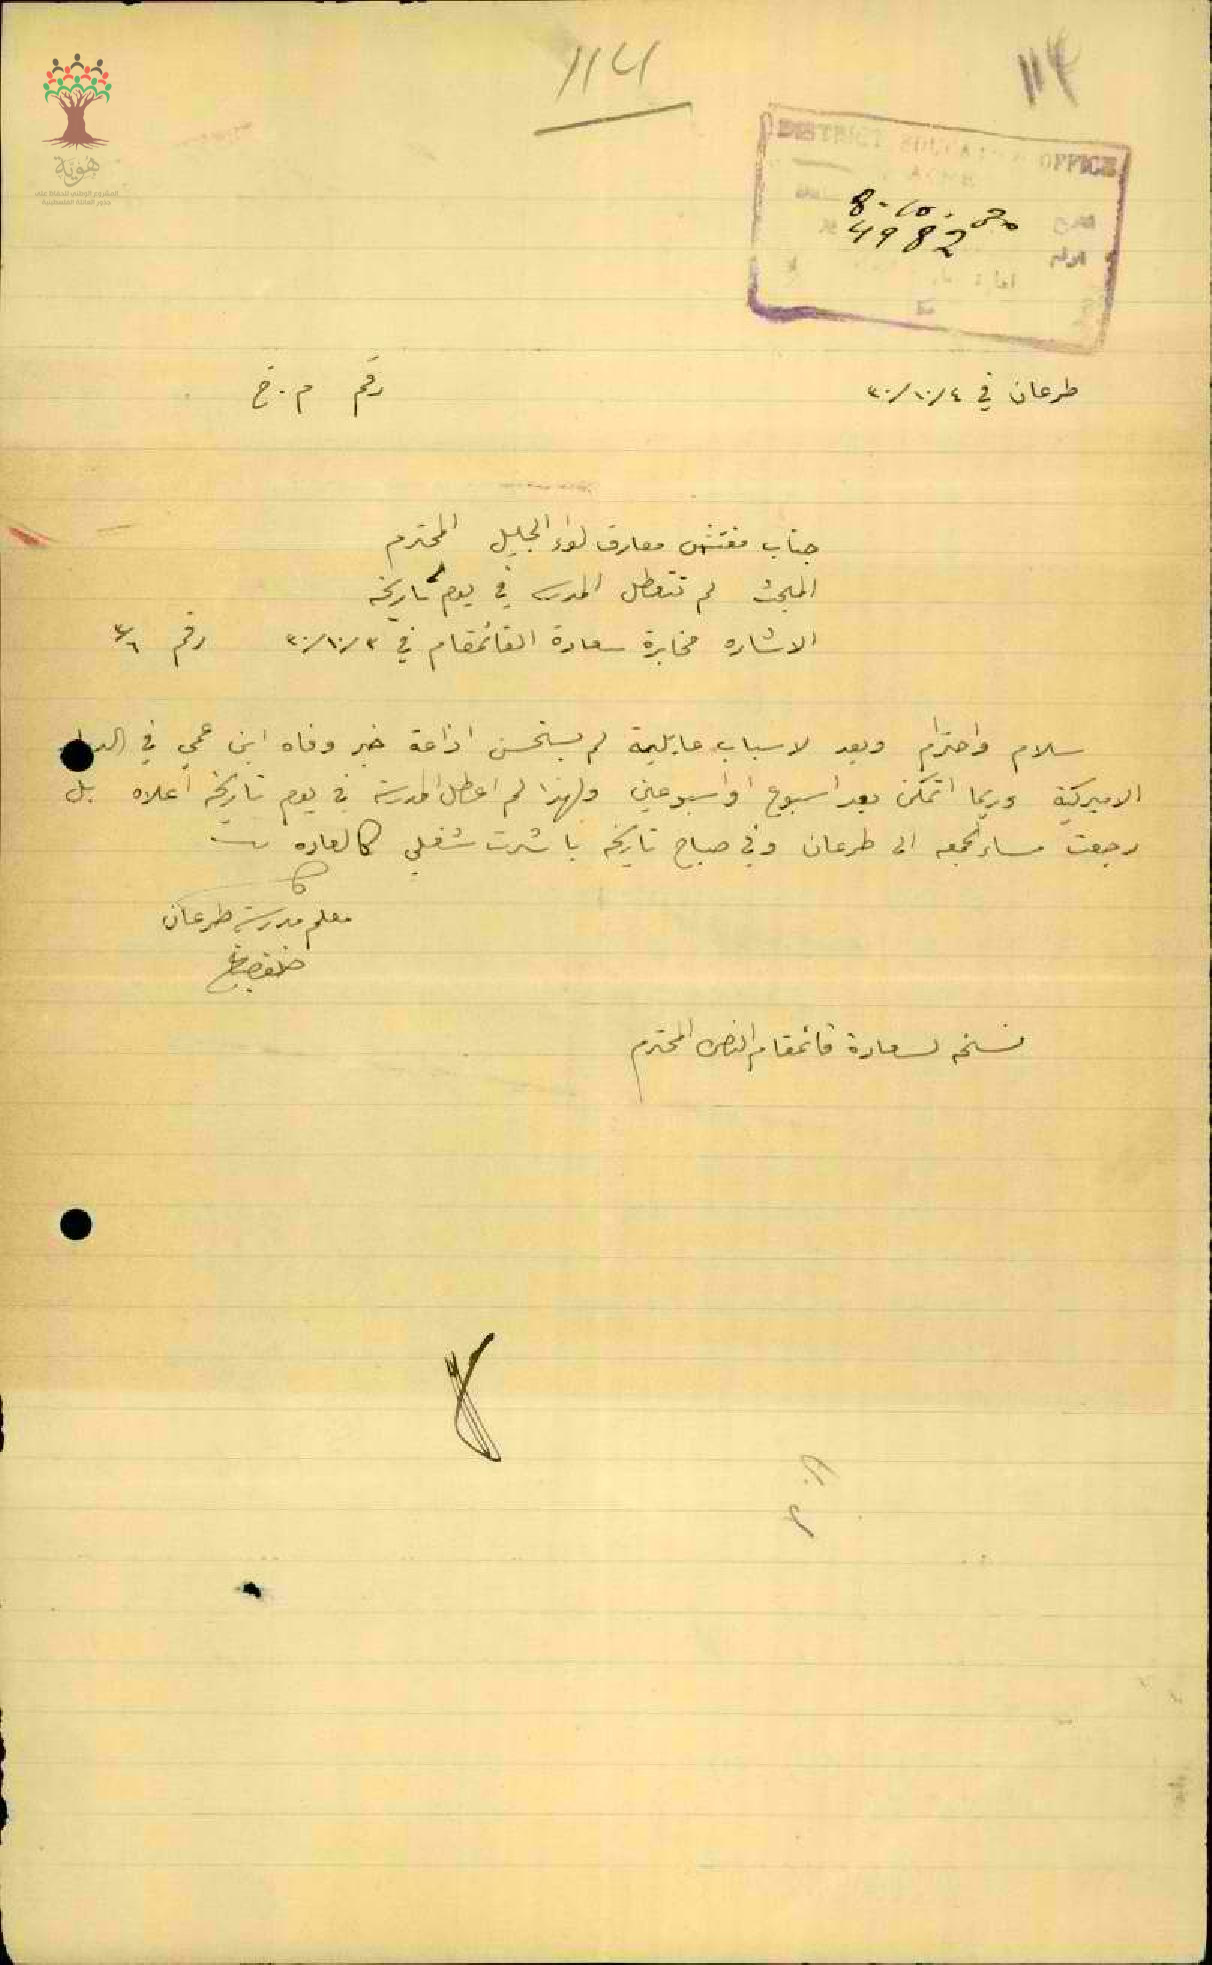 114
114
هوية
المشروع الوطني للحفاظ على
جذور العائلة الفلسطينية
DISTRICT EDUCATION OFFICE
ACRE
8-10-30
4982
طرعان في ٣٠/١٠/٤
رقم م.خ
جناب مفتش معارف لواء الجليل المحترم
المبحث لم تتعطل المدرسه في يوم تاريخه
الاشاره مخابرة سعادة القائمقام في ٣٠/١٠/٣ رقم
سلام واحترام وبعد لاسباب عايلية لم يستحسن اذاعة خبر وفاه ابن عمي في
الاميركية وربما اتمكن بعد اسبوع او اسبوعين ولهذا لم اعطل المدرسة في يوم تاريخه اعلاه بل
رجعت مساء الجمعه الى طرعان وفي صباح تاريخه باشرت شغلي كالعاده
معلم مدرسة طرعان
نسخه لسعادة قائمقام الناصره المحترم